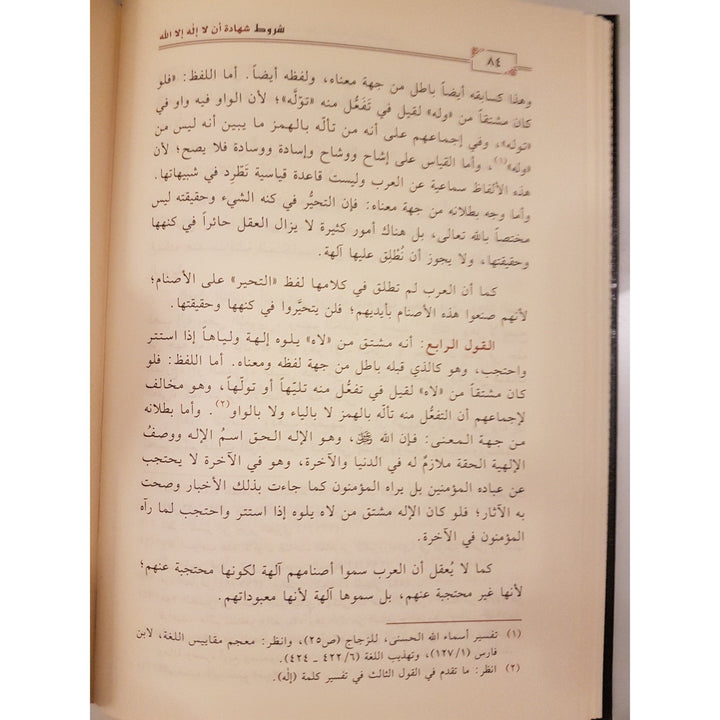 شروط شهادة أن لا إله إلا الله
٨٤
وهذا كسابقه أيضاً باطل من جهة معناه، ولفظه أيضاً. أما اللفظ: «فلو
كان مشتقاً من «وله» لقيل في تَفَعُّل منه «توَلَّه»؛ لأن الواو فيه واو في
«توله»، وفي إجماعهم على أنه من تألّه بالهمز ما يبين أنه ليس من
«وله»(١)، وأما القياس على إشاح ووشاح وإسادة ووسادة فلا يصح؛ لأن
هذه الألفاظ سماعية عن العرب وليست قاعدة قياسية تَطَّرِد في شبيهاتها.
وأما وجه بطلانه من جهة معناه: فإن التحيُّر في كنه الشيء وحقيقته ليس
مختصاً بالله تعالى، بل هناك أمور كثيرة لا يزال العقل حائراً في كنهها
وحقيقتها، ولا يجوز أن نُطْلِق عليها آلهة.
كما أن العرب لم تطلق في كلامها لفظ «التحير» على الأصنام؛
لأنهم صنعوا هذه الأصنام بأيديهم؛ فلن يتحيَّروا في كنهها وحقيقتها.
القول الرابع: أنه مشتق من «لاه» يلوه إلهة ولياهاً إذا استتر
واحتجب، وهو كالذي قبله باطل من جهة لفظه ومعناه. أما اللفظ: فلو
كان مشتقاً من «لاه» لقيل في تفعُّل منه تليّهاً أو تولّهاً، وهو مخالف
لإجماعهم أن التفعُّل منه تألّه بالهمز لا بالياء ولا بالواو(٢). وأما بطلانه
من جهة المعنى: فإن الله ﷻ، وهو الإله الحق اسمُ الإله ووصفُ
الإلهية الحقة ملازمٌ له في الدنيا والآخرة، وهو في الآخرة لا يحتجب
عن عباده المؤمنين بل يراه المؤمنون كما جاءت بذلك الأخبار وصحت
به الآثار؛ فلو كان الإله مشتق من لاه يلوه إذا استتر واحتجب لما رآه
المؤمنون في الآخرة.
كما لا يُعقل أن العرب سموا أصنامهم آلهة لكونها محتجبة عنهم؛
لأنها غير محتجبة عنهم، بل سموها آلهة لأنها معبوداتهم.
(١) تفسير أسماء الله الحسنى، للزجاج (ص٢٥)، وانظر: معجم مقاييس اللغة، لابن
فارس (١٢٧/١)، وتهذيب اللغة (٤٢٢/٦ ـ ٤٢٤).
(٢) انظر: ما تقدم في القول الثالث في تفسير كلمة (إله).